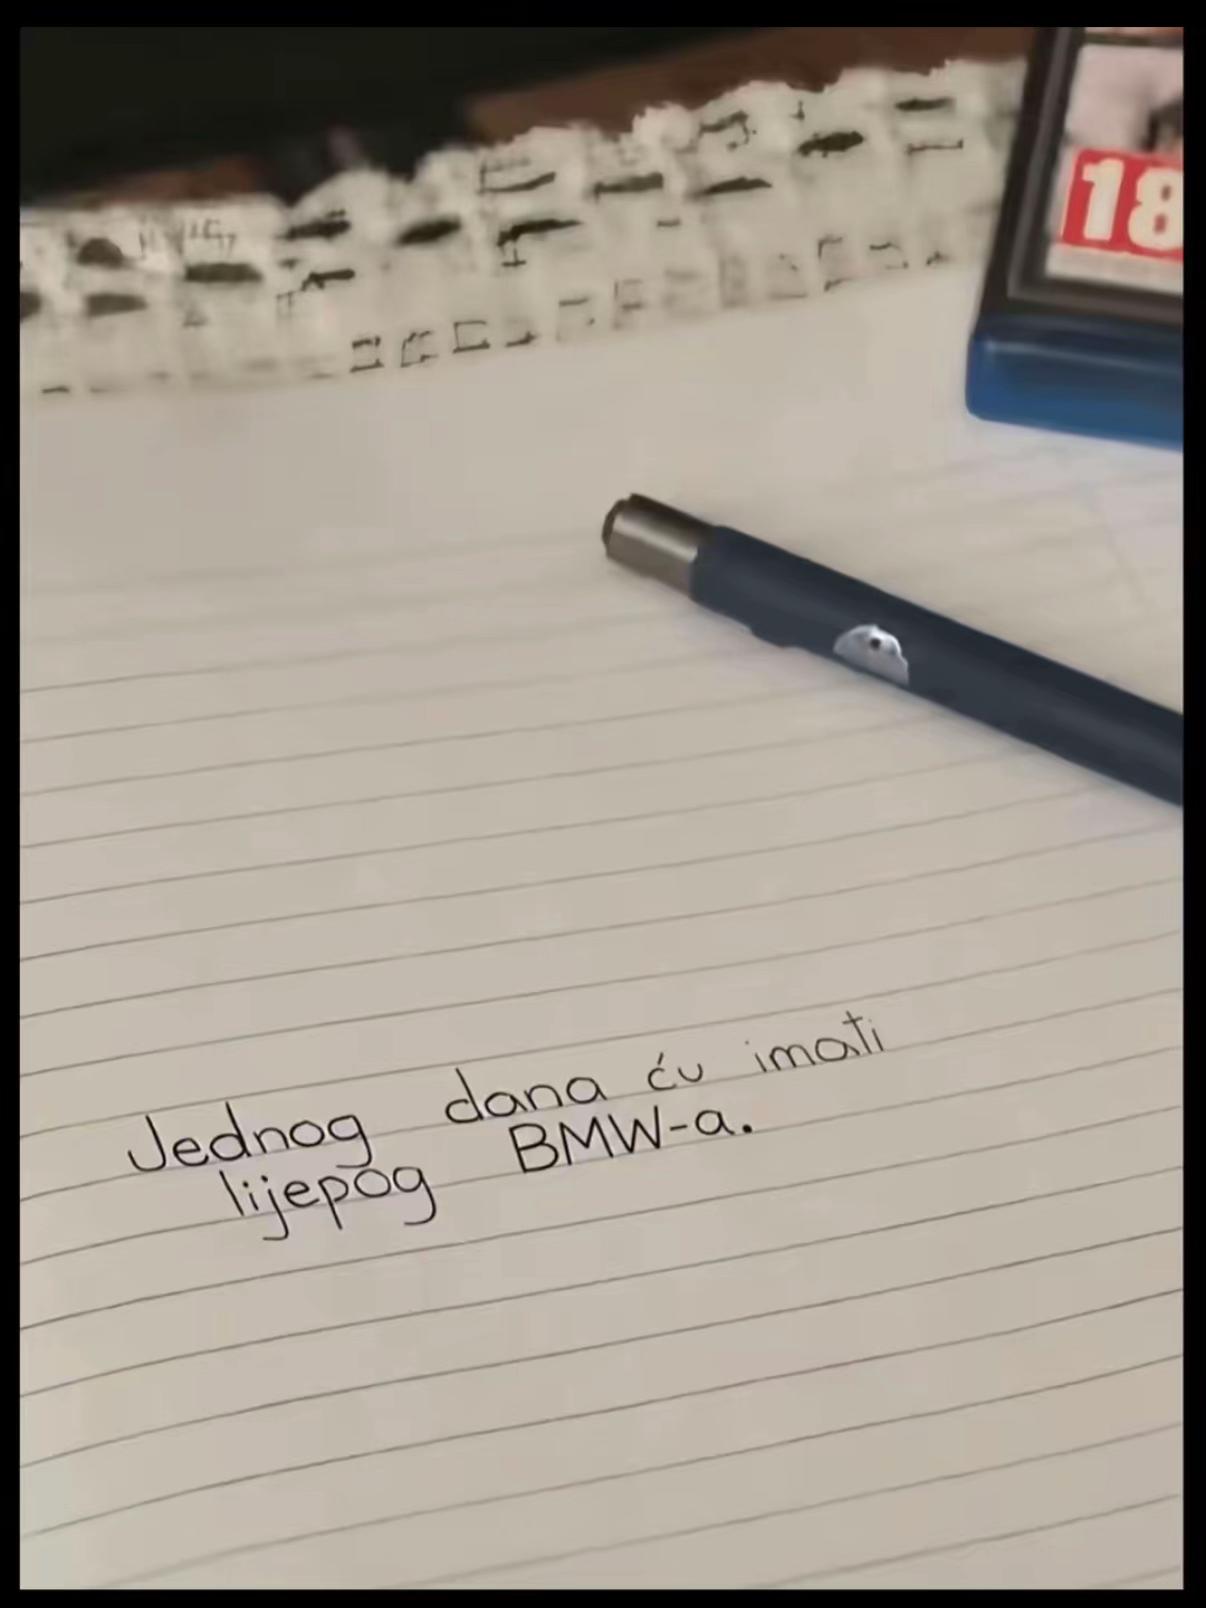 18
Jednog dana ću imati
lijepog BMW-a.